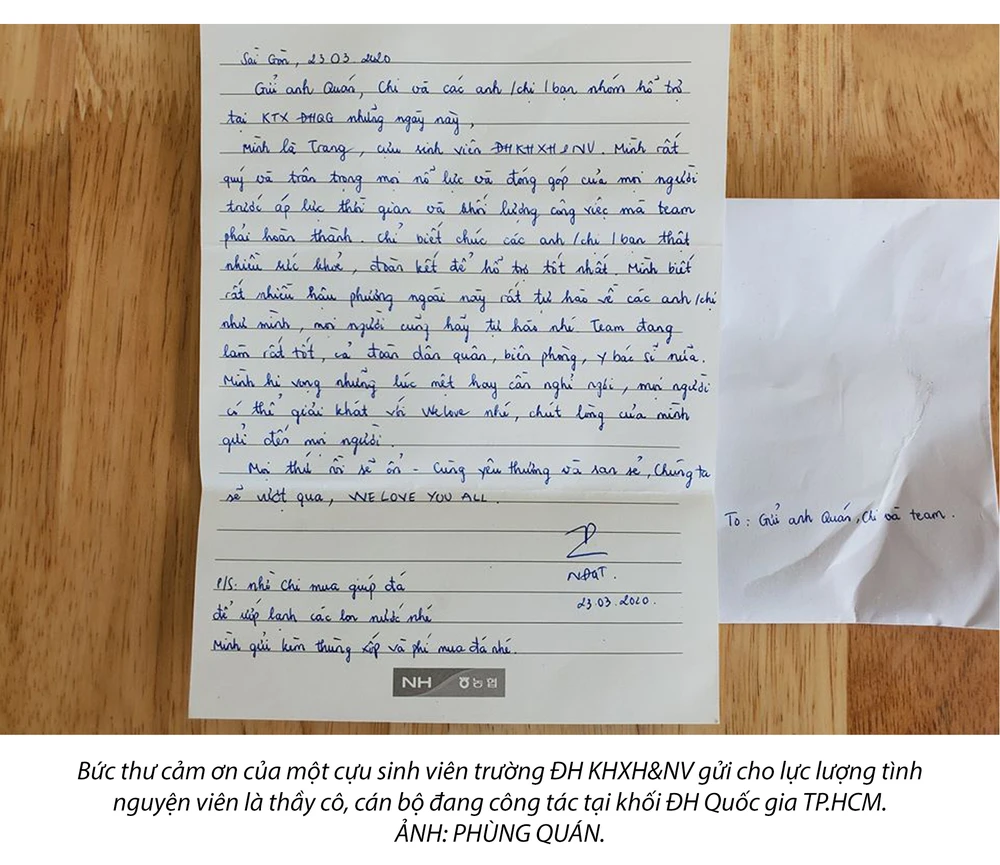 Sài Gòn, 23.03.2020
Gửi anh Quán, Chi và các anh /chị /bạn nhóm hỗ trợ
tại KTX ĐHQG những ngày này,
Mình là Trang, cựu sinh viên ĐHKHXH&NV. Mình rất
quý và trân trọng mọi nỗ lực và đóng góp của mọi người
trước áp lực thời gian và khối lượng công việc mà team
phải hoàn thành. Chỉ biết chúc các anh /chị /bạn thật
nhiều sức khoẻ, đoàn kết để hỗ trợ tốt nhất. Mình biết
rất nhiều hậu phương ngoài này rất tự hào về các anh /chị
như mình, mọi người cũng hãy tự hào nhé. Team đang
làm rất tốt, cả đoàn dân quân, biên phòng, y bác sĩ nữa.
Mình hi vọng những lúc mệt hay cần nghỉ ngơi, mọi người
có thể giải khát với Welove nhé, chút lòng của mình
gửi đến mọi người.
Mọi thứ rồi sẽ ổn - Cùng yêu thương và san sẻ, Chúng ta
sẽ vượt qua, WE LOVE YOU ALL.
NĐQT.
23.03.2020.
P/S: nhờ Chi mua giúp đá
để ướp lạnh các lon nước nhé
Mình gửi kèm thùng xốp và phí mua đá nhé.
NH 농협
To: Gửi anh Quán, Chi và team.
Bức thư cảm ơn của một cựu sinh viên trường ĐH KHXH&NV gửi cho lực lượng tình
nguyện viên là thầy cô, cán bộ đang công tác tại khối ĐH Quốc gia TP.HCM.
ẢNH: PHÙNG QUÁN.